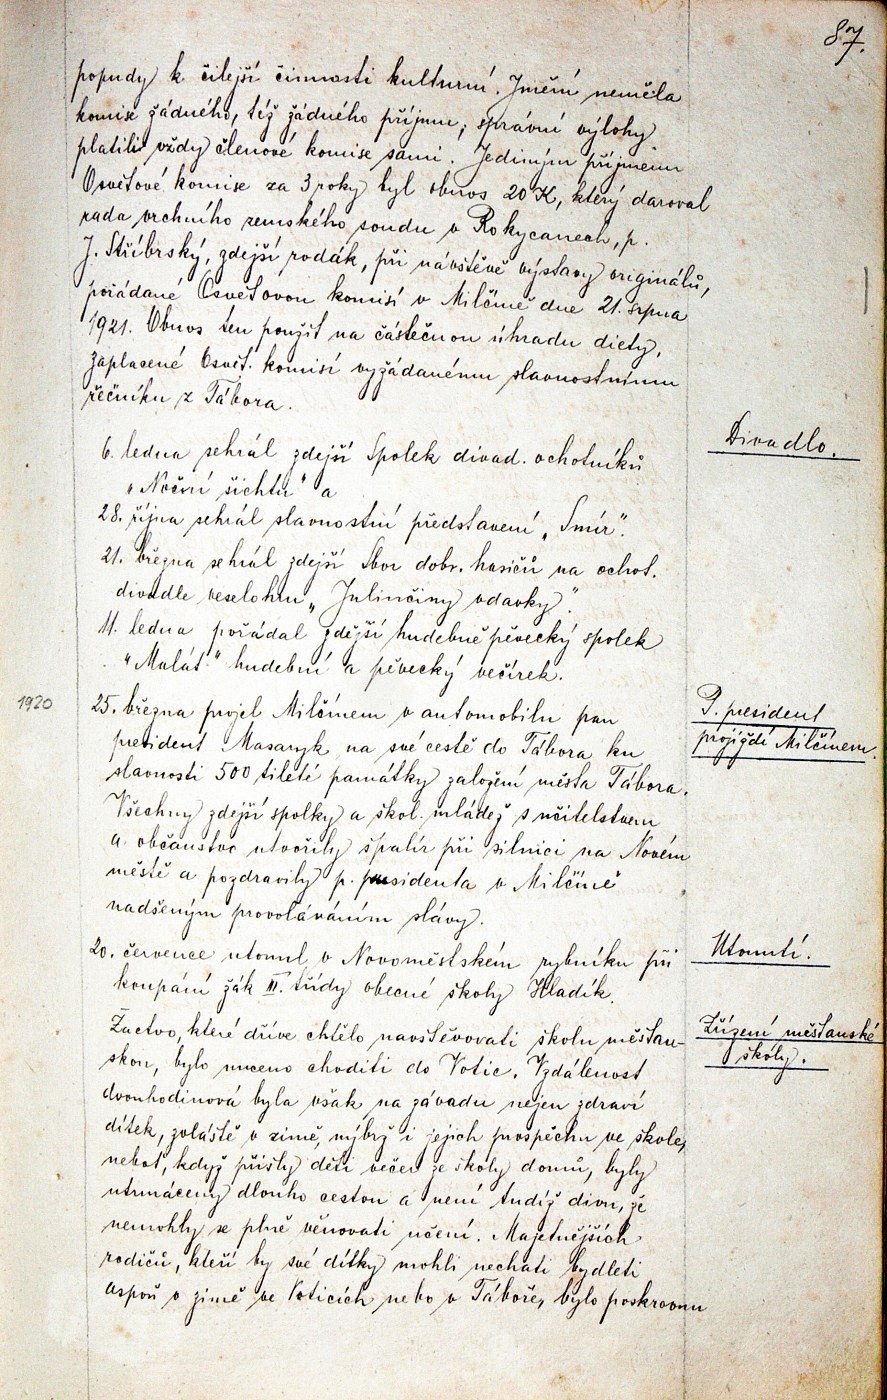 87.
popudy k čilejší činnosti kulturní. Jmění neměla
komise žádného, též žádného příjmu; správní výlohy
platili vždy členové komise sami. Jediným příjmem
Osvětové komise za 3 roky byl obnos 20 K, který daroval
rada vrchního zemského soudu v Rokycanech, p.
J. Stříbrský, zdejší rodák, při návštěvě výstavy originálů,
pořádané Osvětovou komisí v Milčíně dne 21. srpna
1921. Obnos ten použit na částečnou úhradu diety,
zaplacené Osvět. komisí vyžádanému slavnostnímu
řečníku z Tábora.
Divadlo.
6. ledna sehrál zdejší Spolek divad. ochotníků
„Noční šichtu" a
28. října sehrál slavnostní představení „Smír".
21. března sehrál zdejší Sbor dobr. hasičů na ochot.
divadle veselohru „Julinčiny vdavky".
11. ledna pořádal zdější hudebně pěvecký spolek
"Malát" hudební a pěvecký večírek.
1920
P. president
projíždí Milčínem.
25. března projel Milčínem v automobilu pan
president Masaryk na své cestě do Tábora ku
slavnosti 500 tileté památky založení města Tábora.
Všechny zdejší spolky a škol. mládež s učitelstvem
a občanstvo utvořily špalír při silnici na Novém
městě a pozdravily p. presidenta v Milčíně
nadšeným provoláváním slávy.
Utonutí.
20. července utonul v Novoměstském rybníku při
koupání žák III. třídy obecné školy Hladík.
Zřízení měšťanské
školy.
Žactvo, které dříve chtělo navštěvovati školu měšťan-
skou, bylo nuceno choditi do Votic. Vzdálenost
dvouhodinová byla však na závadu nejen zdraví
dítek, zvláště v zimě, nýbrž i jejich prospěchu ve škole,
neboť, když přišly děti večer ze školy domů, byly
utrmáceny dlouho cestou a není tudíž divu, že
nemohly se plně věnovati učení. Majetnějších
rodičů, kteří by své dítky mohli nechati bydleti
aspoň v zimě ve Voticích nebo v Táboře, bylo poskrovnu